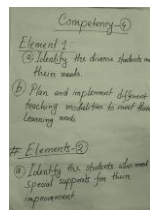 Competency-4
Element 1:
(a) Identify the diverse students and
their needs.
(b) Plan and implement different
teaching modalities to meet their
learning needs
# Elements-2
(a) Identify the students who need
special supports for their
improvement